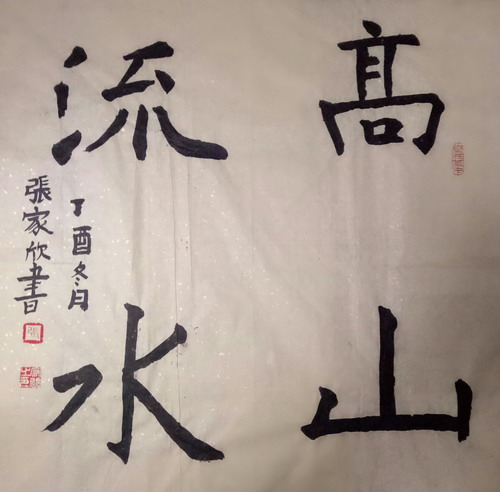 高山
流水
丁酉冬月
張家欣書
張